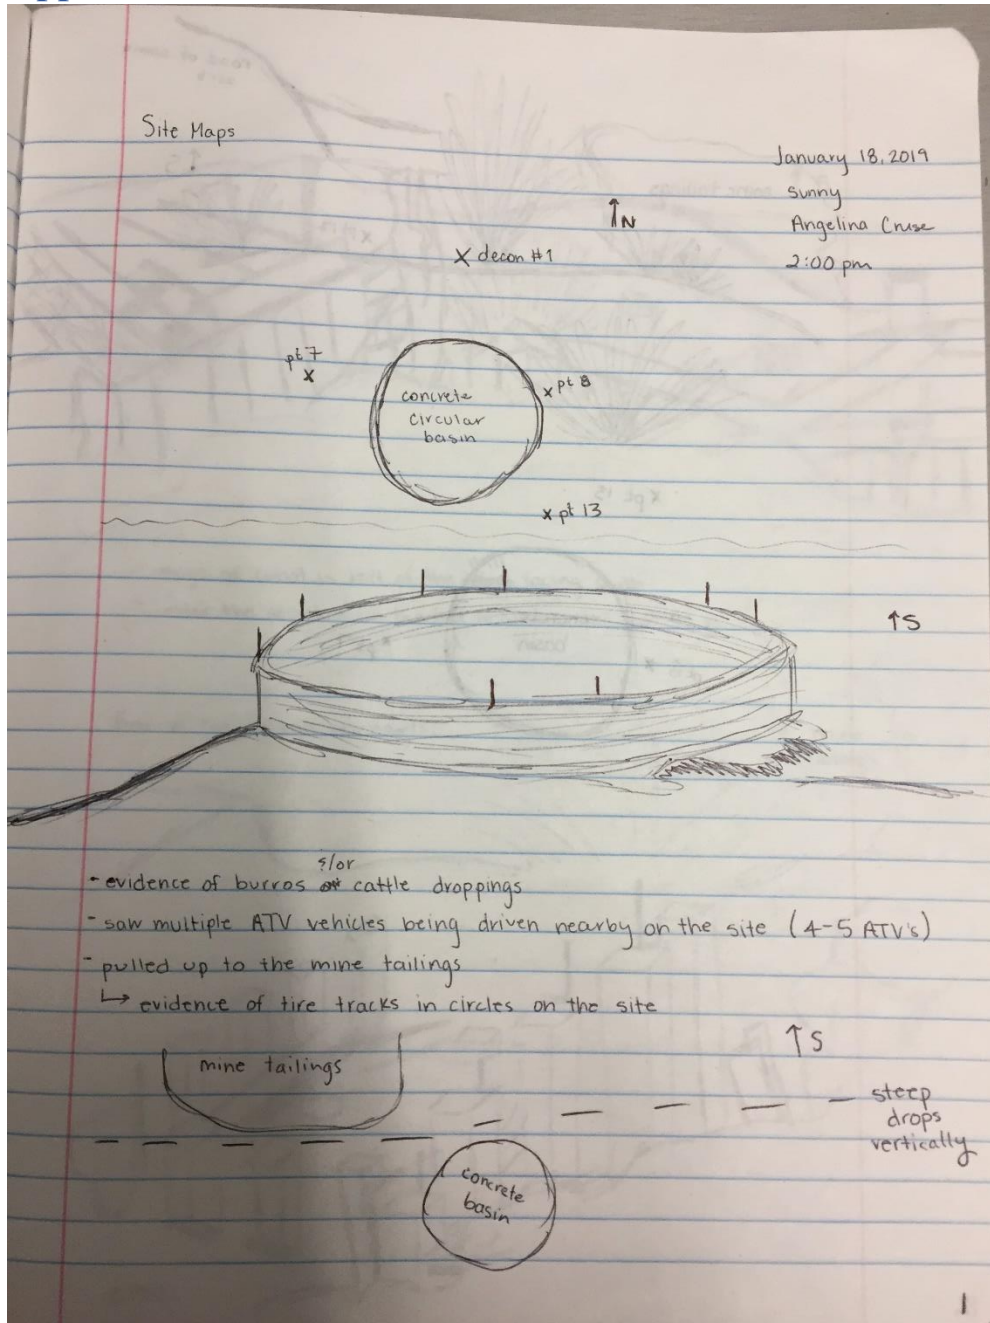 Site Maps
January 18, 2019
sunny
Angelina Cruse
2:00 pm
↑N
X decon #1
pt 7
x
concrete
circular
basin
x pt 8
x pt 13
↑S
&/or
- evidence of burros cattle droppings
- saw multiple ATV vehicles being driven nearby on the site (4-5 ATV's)
- pulled up to the mine tailings
↳ evidence of tire tracks in circles on the site
↑S
mine tailings
steep
drops
vertically
concrete
basin
1